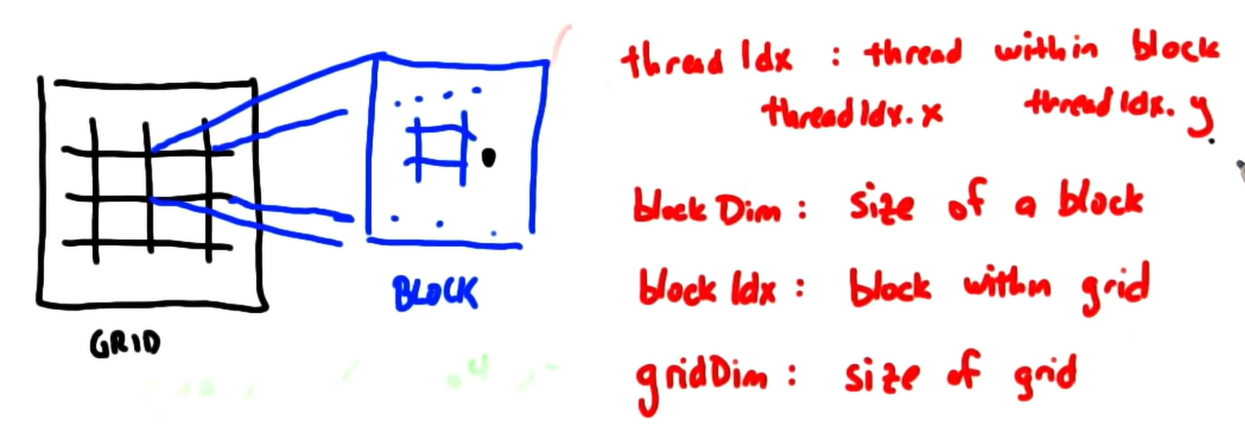 threadIdx : thread within block
threadIdx.x threadIdx.y
blockDim : size of a block
blockIdx : block within grid
gridDim : size of grid
BLOCK
GRID